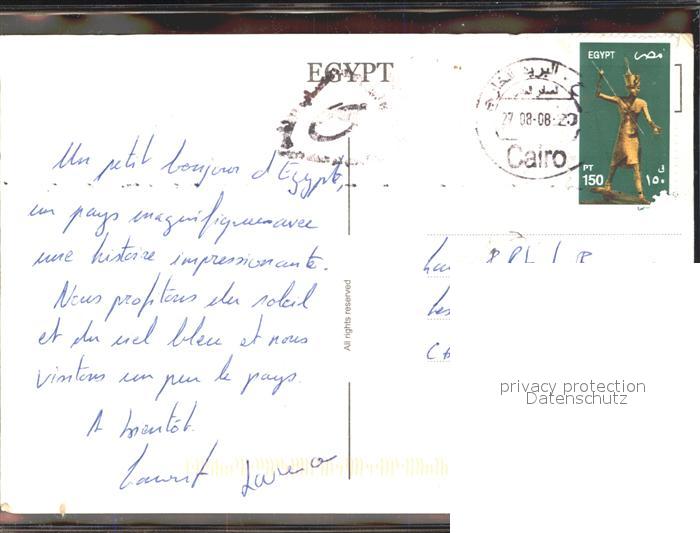 EGYPT
EGYPT مصر
27-08-08-20
Cairo
PT
150
ق
١٥٠
Un petit bonjour d'Egypte,
un pays magnifique avec
une histoire impressionnante.
Nous profitons du soleil
et du ciel bleu et nous
visitons un peu le pays.
A bientôt.
Laurent
All rights reserved
privacy protection
Datenschutz